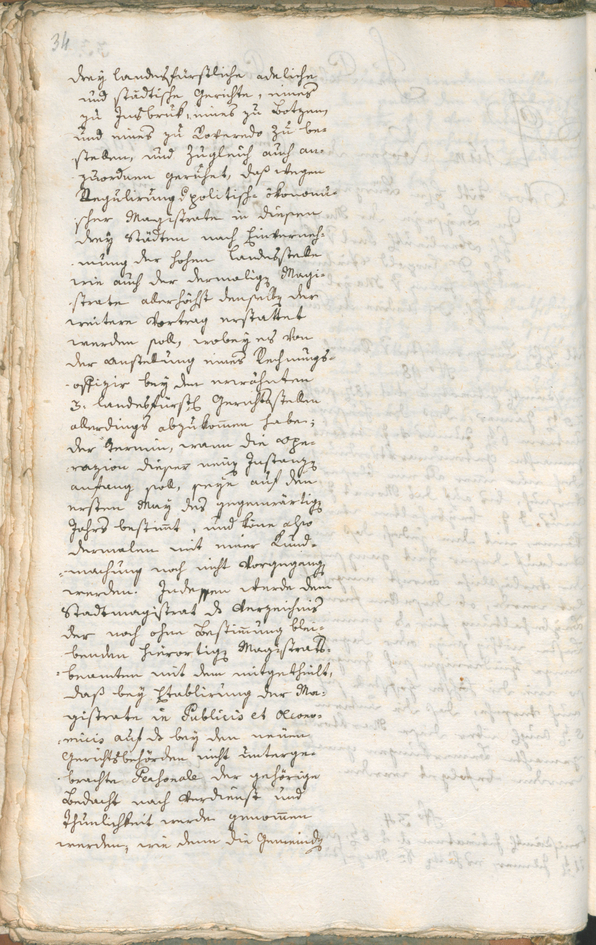 34.
drey landesfürstliche adeliche
und städtische Gerichte, eines
zu Insbruk, eines zu Botzen,
und eines zu Roveredo zu be-
stellen, und zugleich auch an-
zuordnen geruhet, daß wegen
Regulirung politisch-ökonomi-
scher Magistrate in diesen
drey Städten nach Einverneh-
mung der hohen Landesstelle
wie auch der dermalig Magi-
strate allerhöchst denselb der
weitere Vortrag erstattet
werden soll, wobey es von
der Anstellung eines Rechnungs-
offizir bey den erwähnten
3. landesfürstl Gerichtsstellen
allerdings abzukomen habe;
der Termin, wann die Ope-
razion dieser neuen Instanz
anfang soll, seye auf den
ersten May des gegenwärtig
Jahrs bestimt, und köne also
dermalen mit einer Kund-
machung noch nicht vorgegang
werden. Indessen werde dem
Stadtmagistrat das Verzeichnis
der noch ohne Bestimung blei-
benden hierortig Magistrats-
beamten mit dem mitgetheilt,
daß bey Etablirung der Ma-
gistrate in Publicis et Oecono-
micis auf das bey den neuen
Gerichtsbehörden nicht unterge-
brachte Personale der gehörige
Bedacht nach Verdienst und
Thunlichkeit werde genomen
werden, wie denn die Gemeind